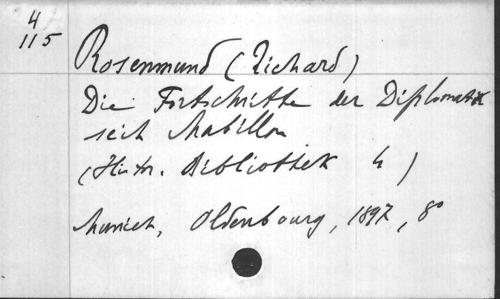 4
115
Rosenmund (Richard)
Die Fortschritte der Diplomatik
seit Mabillon
(Histor. Bibliothek 4)
Munich, Oldenbourg, 1897, 8°